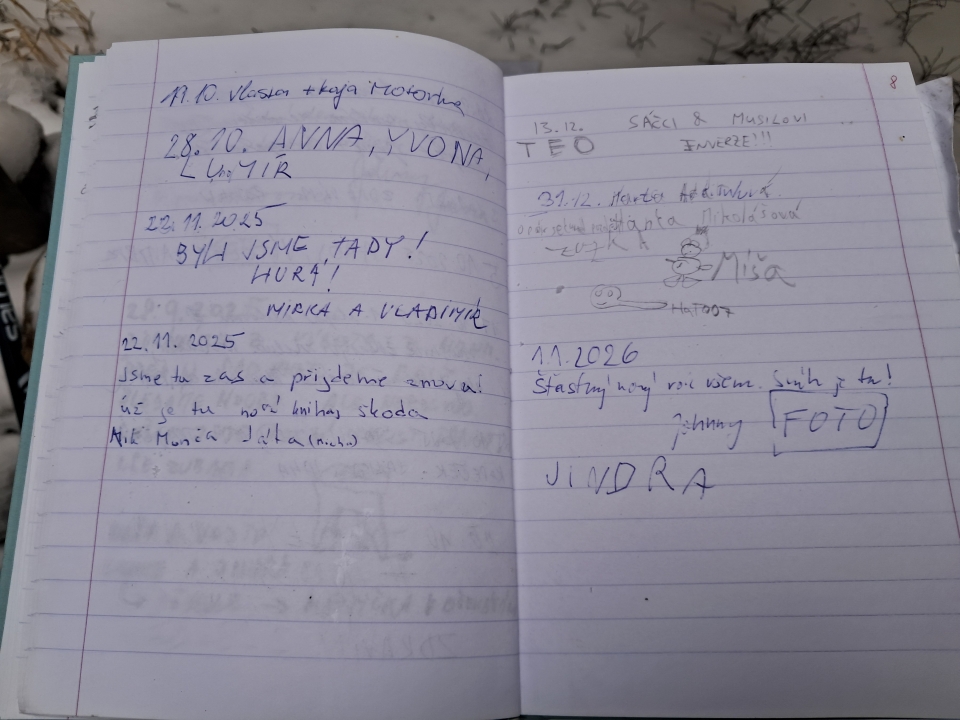 19.10. Vlasta + Kája Motorina
28.10. ANNA, YVONA,
LUbOMÍR
22.11.2025
BYLI JSME TADY!
HURÁ!
MIRKA A VLADIMÍR
22.11.2025
Jsme tu zas a přijdeme znova!
Už je tu nová kniha, škoda
Nik Monča Jitka
8
13.12. SÁČCI & MUSILOVI
TEO INVERZE!!!
31.12.
Hanka Mikolášová
Míša
1.1.2026
Šťastný nový rok všem. Sníh je tu!
Johnny FOTO
JINDRA